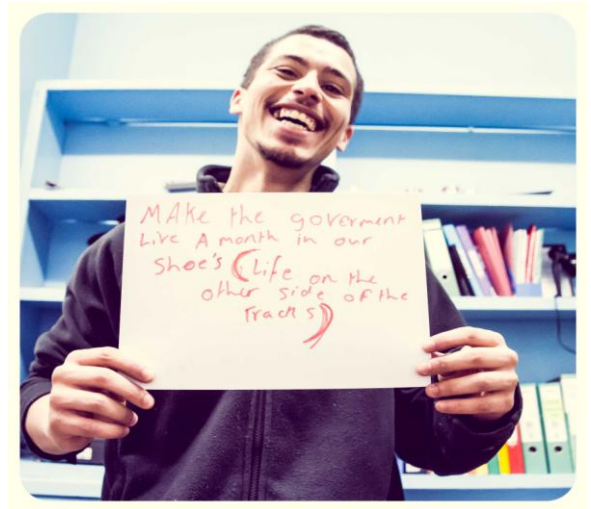 MAke the goverment
Live A month in our
Shoe's (Life on the
other side of the
Tracks)